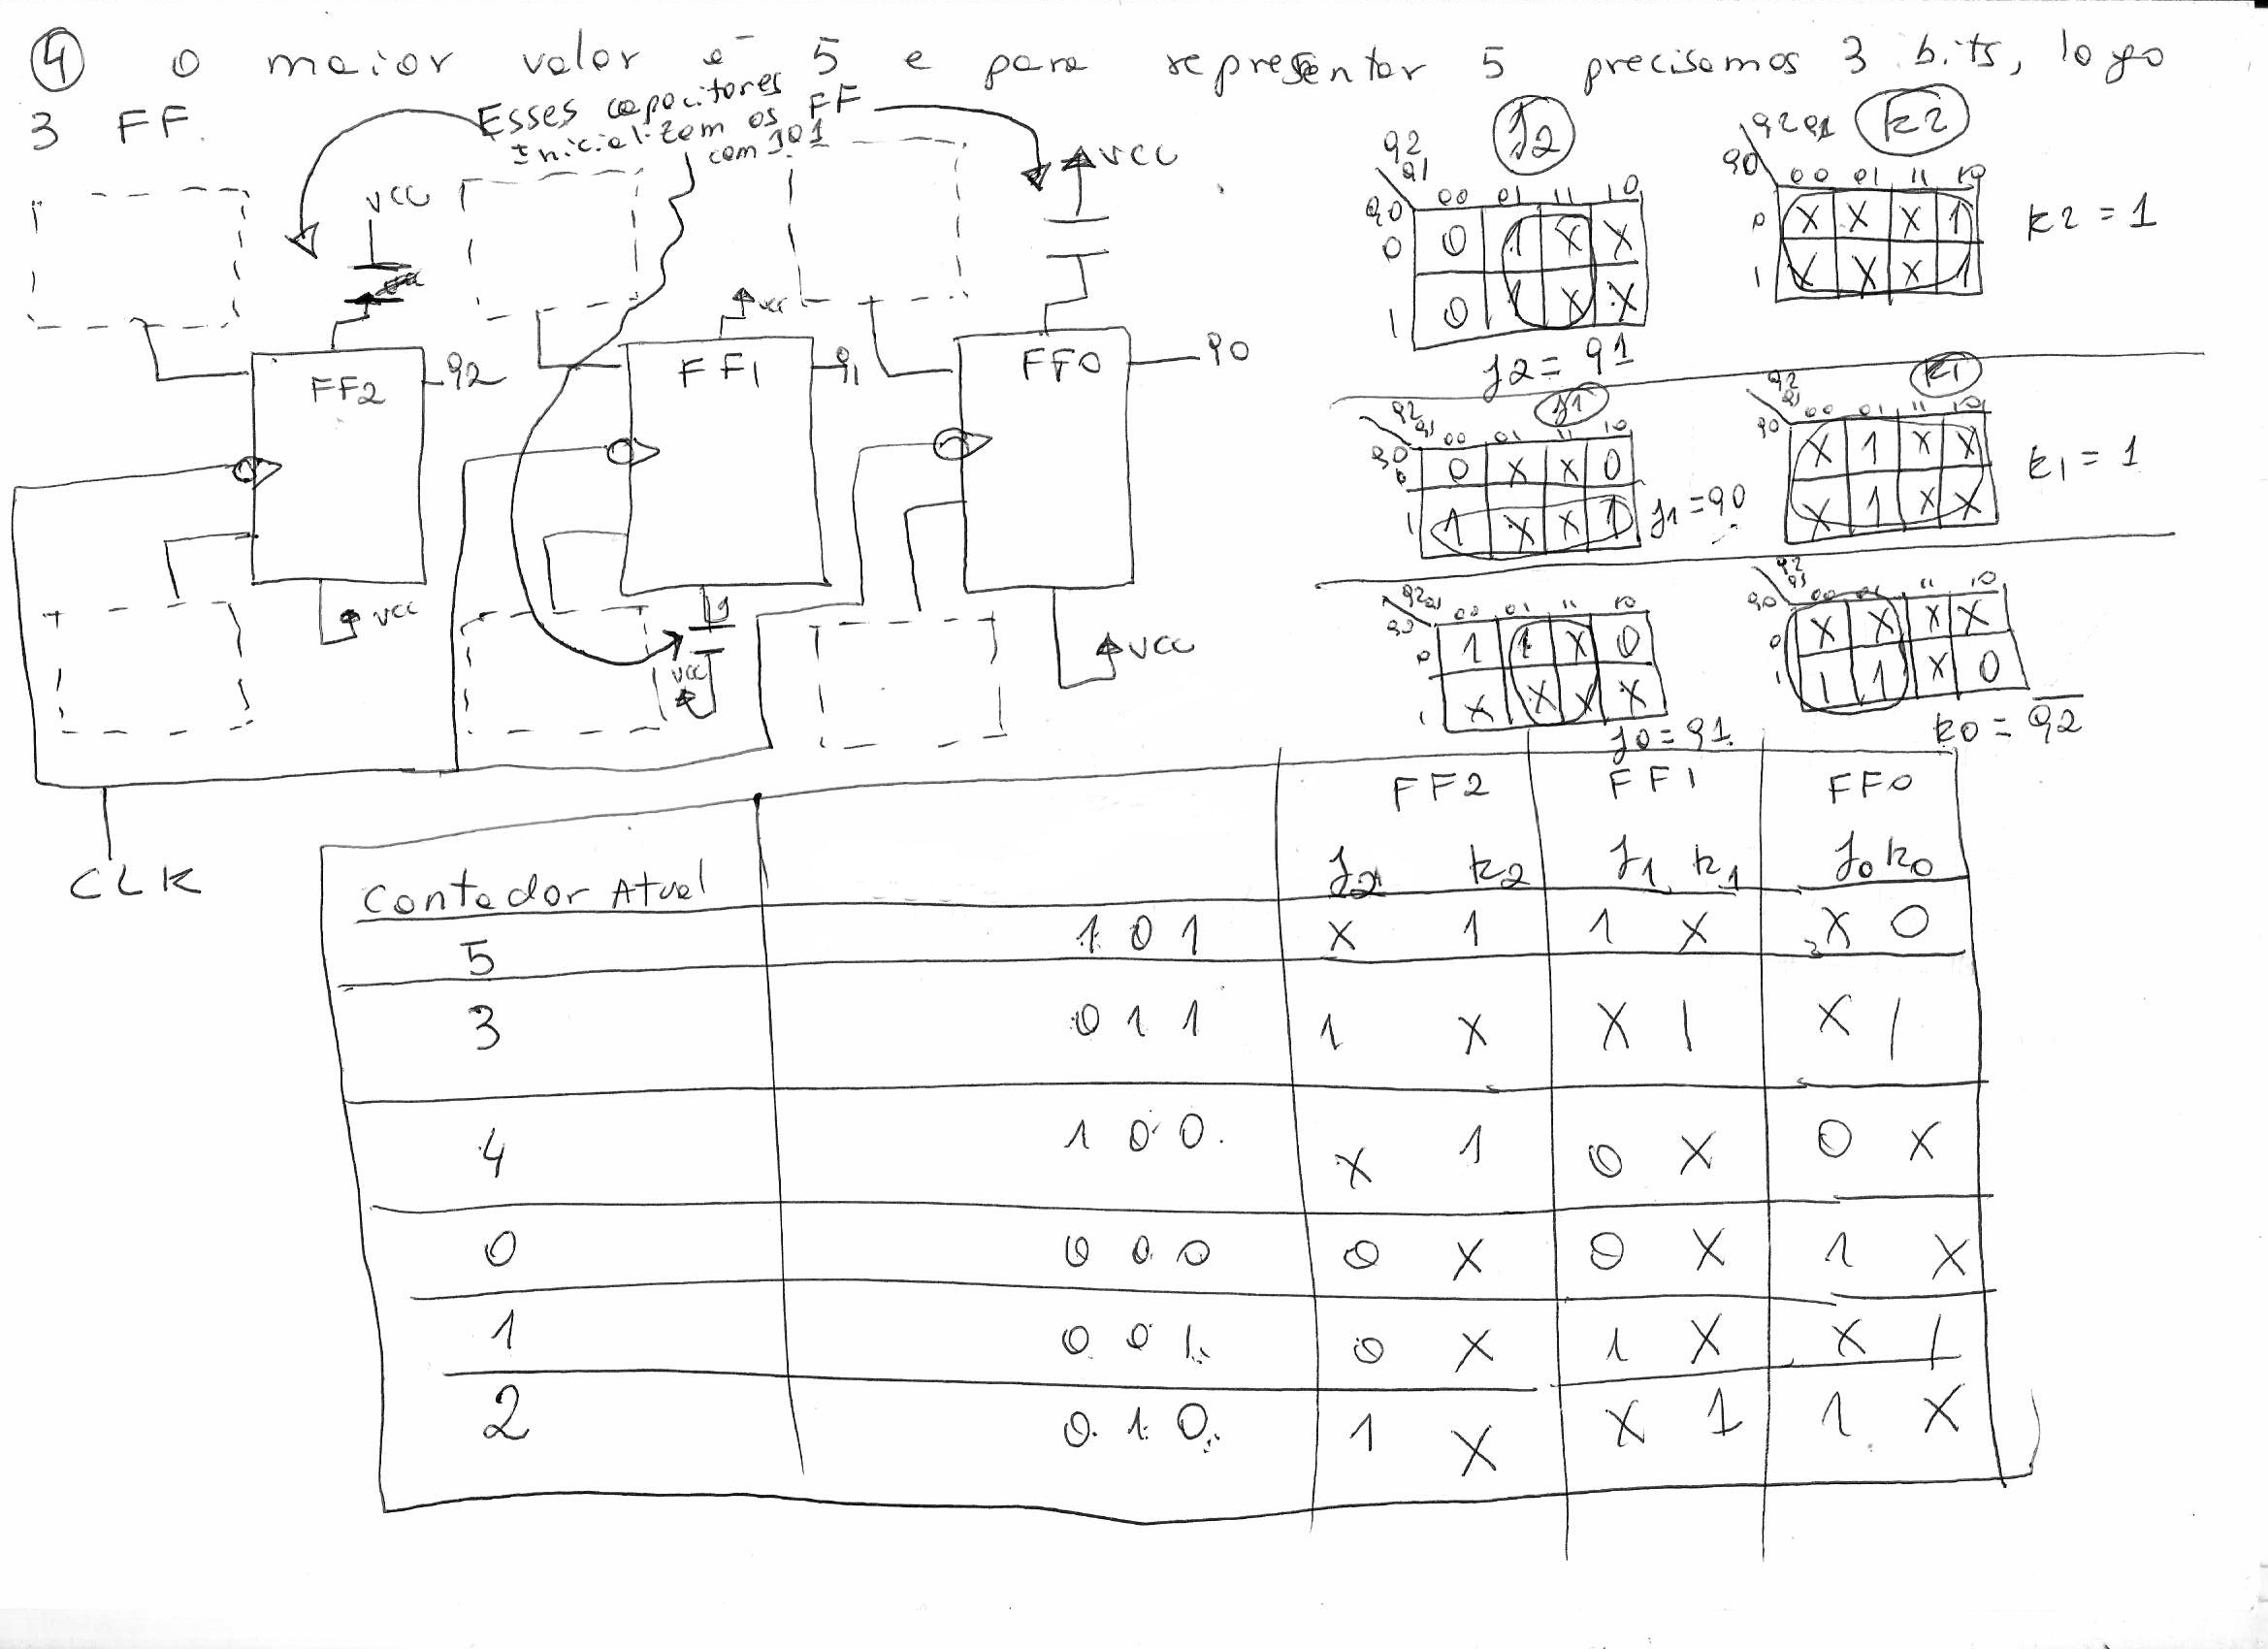 4 o maior valor é 5 e para representar 5 precisamos 3 bits, logo
3 FF.
Esses capacitores
Inicializam os FF
com 101
VCC
VCC
VCC
FF2
q2
FF1
q1
FF0
q0
VCC
VCC
VCC
CLK
J2
q2
q1
q0
00 01 11 10
0 0 1 X X
1 0 1 X X
J2 = q1
K2
q2q1
q0
00 01 11 10
0 X X X 1
1 X X X 1
K2 = 1
J1
q2
q1
q0
00 01 11 10
0 0 X X 0
1 1 X X 1
J1 = q0
K1
q2
q1
q0
00 01 11 10
X 1 X X
X 1 X X
K1 = 1
q2q1
q0
00 01 11 10
0 1 1 X 0
1 X X X X
J0 = q1
q2
q1
q0
00 01 11 10
0 X X X X
1 1 1 X 0
K0 = q̅2̅
FF2 FF1 FF0
Contador Atual J2 K2 J1 K1 J0 K0
5 101 X 1 1 X X 0
3 011 1 X X 1 X 1
4 100 X 1 0 X 0 X
0 000 0 X 0 X 1 X
1 001 0 X 1 X X 1
2 010 1 X X 1 1 X